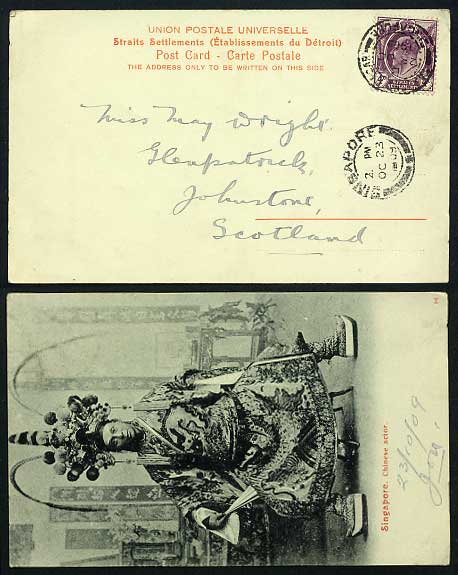 UNION POSTALE UNIVERSELLE
Straits Settlements (Établissements du Détroit)
Post Card - Carte Postale
THE ADDRESS ONLY TO BE WRITTEN ON THIS SIDE
Miss May Wright.
Johnstone,
Scotland
SINGAPORE
2. PM
OC 23
Singapore. Chinese actor.
23/10/09